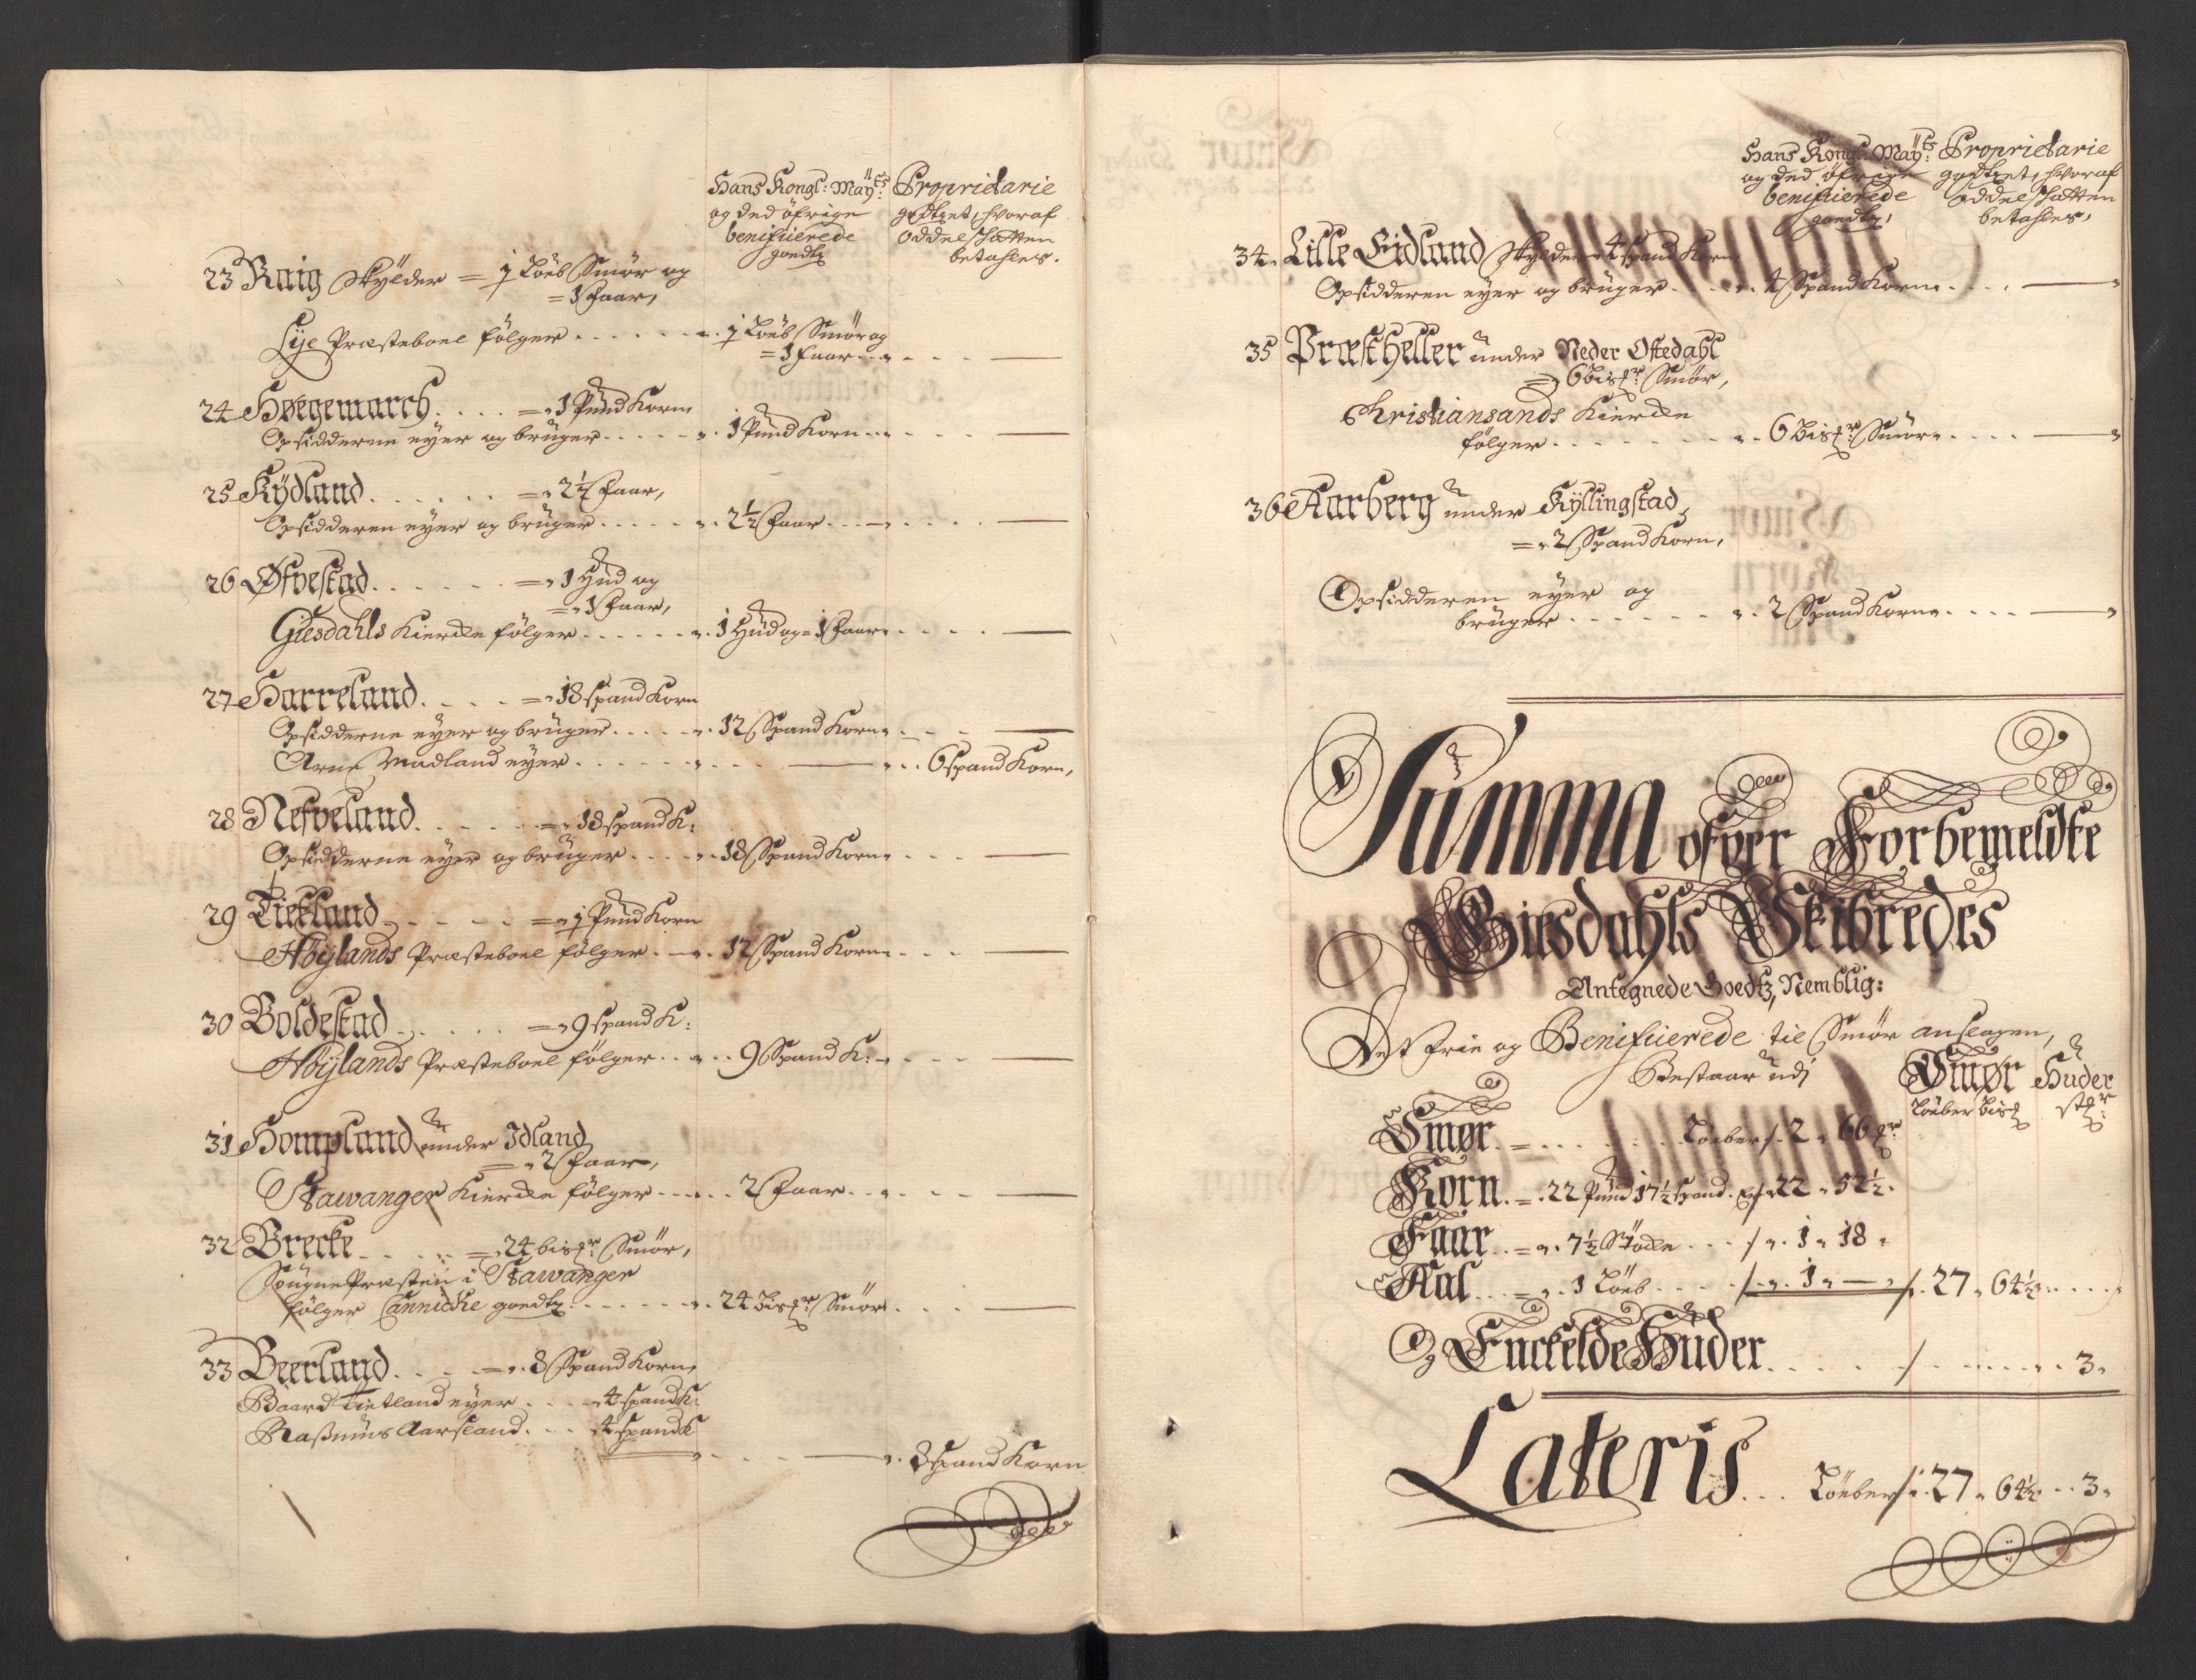 Hans Kongl: Mayts: Proprietarie
og ded öfrige godtzet, hvoraf
benificerede oddelschatten
goedtz betahles.
23 Raig Skÿlder = 1 Löeb Smör og
= 1 Faar,
Lÿe Præsteboel fölger . . . . . 1 Löeb Smör og
= 1 Faar . . . —
24 Høegemarch . . . . =„ 1 Pund Korn
Opsidderne eÿer og brüger . . . . 1 Pund Korn . . . —
25 Kÿdland . . . . . . =„ 2½ Faar,
Opsidderen eÿer og brüger . . . . 2½ Faar . . . —
26 Øfvestad . . . . . . =„ 1 Hud og
=„ 1 Faar,
Giesdahls Kiercke fölger . . . . . . 1 Hud og = 1 Faar . . . —
27 Harreland . . . . =„ 18 spand Korn
Opsidderne eÿer og brüger . . . . 12 Spand Korn . . . —
Arne Madland eÿer . . . . . . — . . 6 spand Korn,
28 Nefveland . . . . . =„ 18 spand K:
Opsidderne eÿer og brüger . . . . 18 Spand Korn . . . —
29 Tietland . . . . . =„ 1 Pund Korn
Höÿlands Præsteboel fölger . . . 12 Spand Korn . . . —
30 Boldestad . . . . . =„ 9 spand K:
Höÿlands Præsteboel fölger . . . 9 Spand K: . . . —
31 Hompland under Idland
=„ 2 Faar,
Stawanger Kiercke fölger . . . . 2 Faar . . . —
32 Brecke . . . . =„ 24 bispr: Smör,
Sougne Præsten i Stawanger
fölger Cannicke goedtz . . . . . . 24 Bispr: Smör . . . —
33 Beerland . . . . =„ 8 Spand Korn,
Baard Tietland eÿer . . . 4 spand K:
Rasmus Aarsland . . . 4 spand K
. . . — . 8 spand Korn
Hans Kongl: Mayts: Proprietarie
og ded öfrige godtzet, hvoraf
benificerede oddelschatten
goedtz, betahles,
34. Lille Eidland Skÿlder 4 spand Korn
Opsidderen eÿer og brüger . . . . 4 Spand Korn . . . —
35 Præstheller under Neder Oftedahl
=„ 6 bispr: Smör,
Christiansands Kiercke
fölger . . . . . . . . 6 Bispr: Smör . . . . —
36 Aarberg under Kÿllingstad
=„ 2 Spand Korn,
Opsidderen eÿer og
brüger . . . . . . . 2 Spand Korn . . . . —
Summa ofver Forbemeldte
Giesdahls Skibredes
Antegnede Goedtz, Nemblig:
Det frie og Benificerede til Smör anslagen,
Bestaar udj Smør Huder
Löeber Bispd str:
Smør . = . . . . . Löeber /. 2 „ 66 pr
Korn . = . 22 Pund 17½ spand . er /. 22 „ 52½.
Faar . . = „. 7½ Støcke . . . /„. 1 „ 18 „
Aal . . . = „. 1 Löeb . . . . /„. 1 „ — „ /. 27 „ 64½ . . . . .
Og Enckelde Huder . . . . . /. . . . . . . 3.
Lateris . . . Löeber /. 27 „ 64½ . . 3.